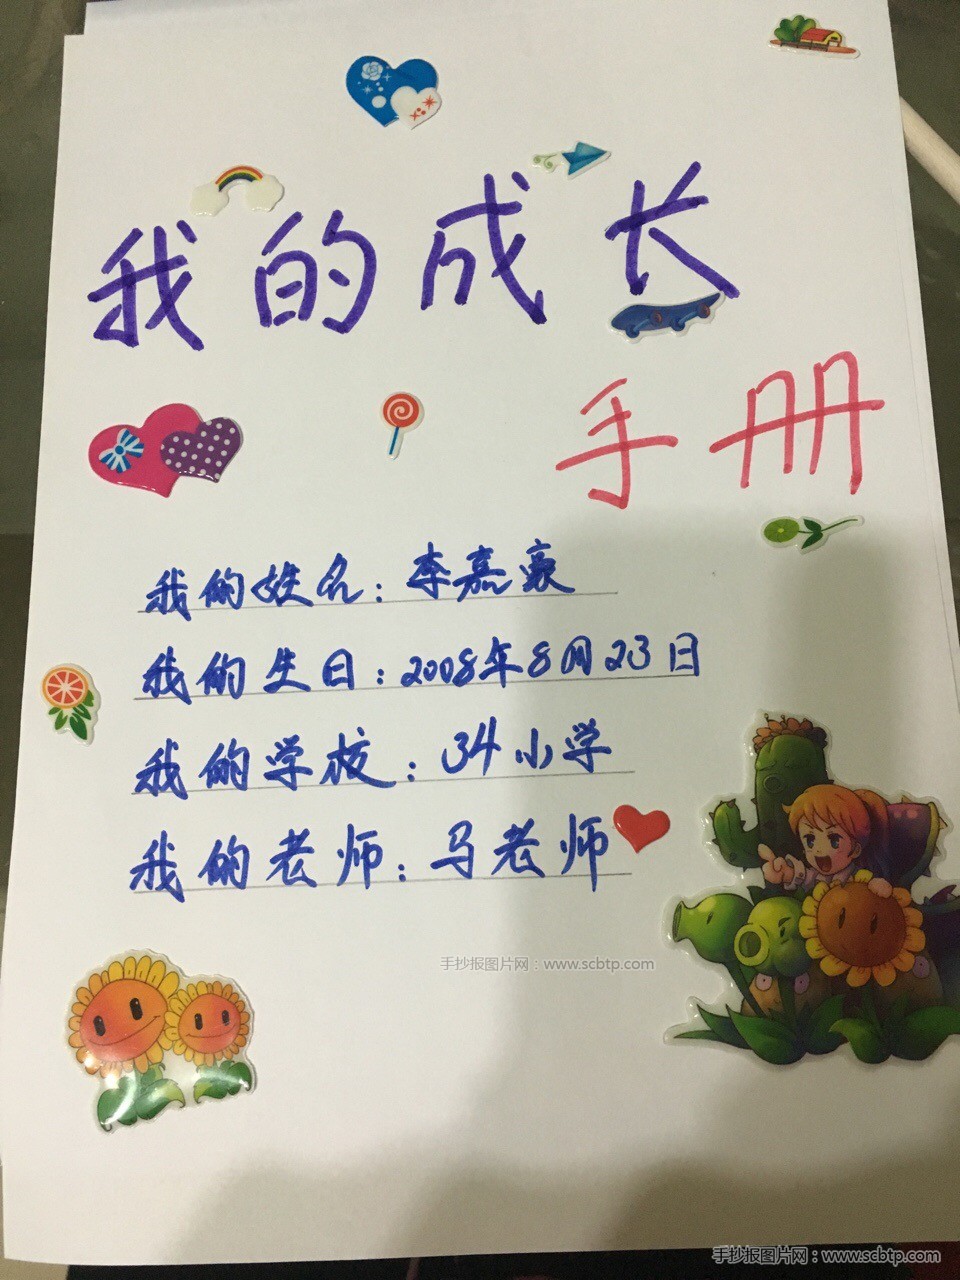 我的成长
手册
我的姓名：李嘉豪
我的生日：2008年8月23日
我的学校：34小学
我的老师：马老师
手抄报图片网：www.scbtp.com
手抄报图片网：www.scbtp.com